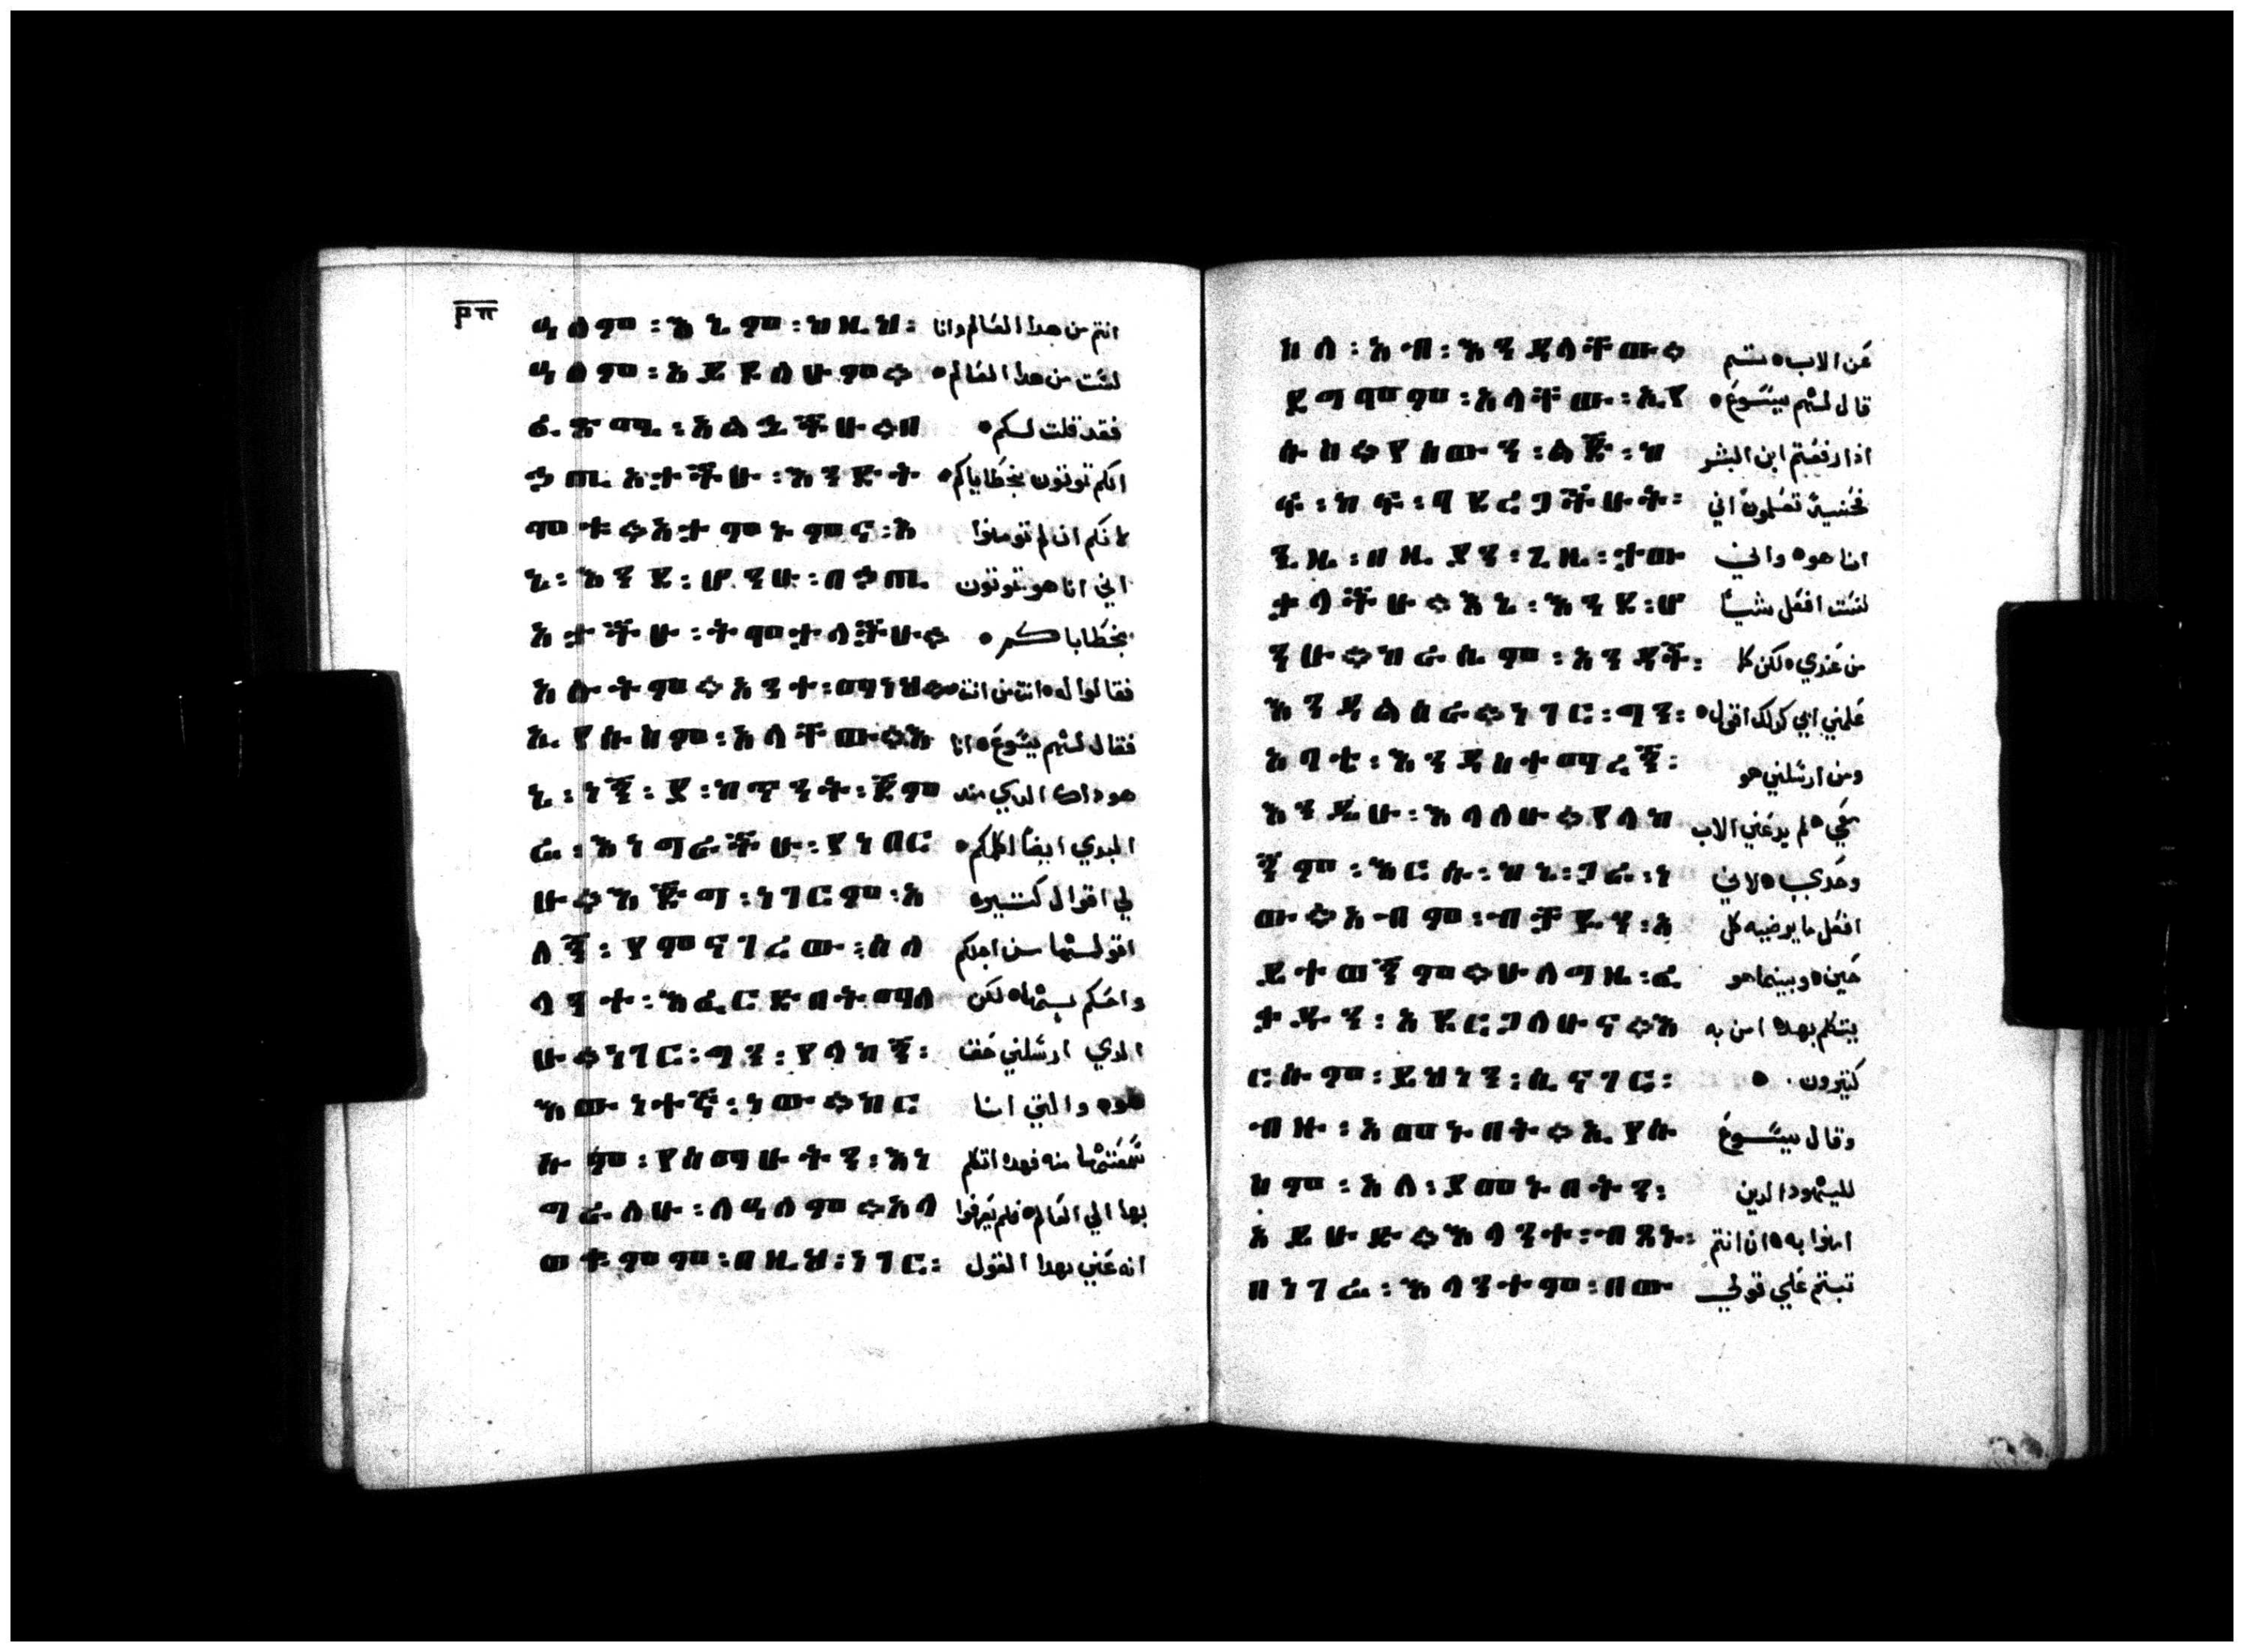 ዓለም፡እኔም፡ከዚህ፡ انتم من هدا العالم وانا
ዓለም፡አይደለሁም። لست من هدا العالم
አልኋችሁ።በ فقد قلت لكم
ኃጢአታችሁ፡እንድት انكم توتون بخطاياكم
ሞቱ።አታምኑምና፡እ لانكم ان لم تومنوا
ኔ፡እንደ፡ሆንሁ፡በኃጢ اني انا هو توتون
አታችሁ፡ትሞታላችሁ። بخطاياكم
አሉትም።አንተ፡ማነህ። فقالوا له انت من انت
ኢየሱስም፡አላቸው።እ فقال لهم يسوع انا
ኔ፡ነኝ፡ያ፡ከጥንት፡ጀም هو داك الدي مند
ሬ፡እነግራችሁ፡የነበር البدي ايضا اكلمكم
ሁ።እጅግ፡ነገርም፡አ لي اقوال كتيره
ለኝ፡የምናገረው፡ስለ اقولها من اجلكم
ላንተ፡እፈርድበትማለ واحكم بها لكن
ሁ።ነገር፡ግን፡የላከኝ፡ الدي ارسلني حق
እውነተኛ፡ነው።ከር هو والتي انا
ሱም፡የሰማሁትን፡እነ سمعتها منه فهده اتكلم
ግራለሁ፡ለዓለም።አላ بها الي العالم فلم يعرفوا
ወቀምም፡በዚህ፡ነገር፡ انه عني بهدا القول
ስለ፡አብ፡እንዳላቸው። عن الاب
ዳግመም፡አላቸው፡ኢየ قال لهم يسوع
ሱስ።የሰውን፡ልጅ፡ከ ادا رفعتم ابن البشر
ፍ፡ከፍ፡ባደረጋችሁት፡ فحينيد تعلمون اني
ጊዜ፡በዚያን፡ጊዜ፡ታው انا هو واني
ቃላችሁ።እኔ፡እንደ፡ሆ لست افعل شيا
ንሁ።ከራሴም፡አንዳች፡ من عندي لكن كما
እንዳልሰራ።ነገር፡ግን፡ علمني ابي كدلك اقول
አባቴ፡እንዳስተማረኝ፡ ومن ارسلني هو
እንዲሁ፡እላለሁ።የላከ معي لم يدعني الاب
ኝም፡እርሱ፡ከኔ፡ጋራ፡ነ وحدي لاني
ው።አብም፡ብቻዬን፡አ افعل ما يرضيه كل
ይተወኝም።ሁለግዜ፡ፈ حين وبينما هو
ቃዱን፡አደርጋለሁና።እ يتكلم بهدا امن به
ርሱም፡ይህነን፡ሲናገር፡ كتيرون
ብዙ፡አመኑበት።ኢየሱ وقال يسوع
ስም፡አለ፡ያመኑበትን፡ لليهود الدين
አይሁድ።እላንት፡ብጸኑ፡ امنوا به ان انتم
በነገሬ፡እላንተም፡በው تبتم علي قولي